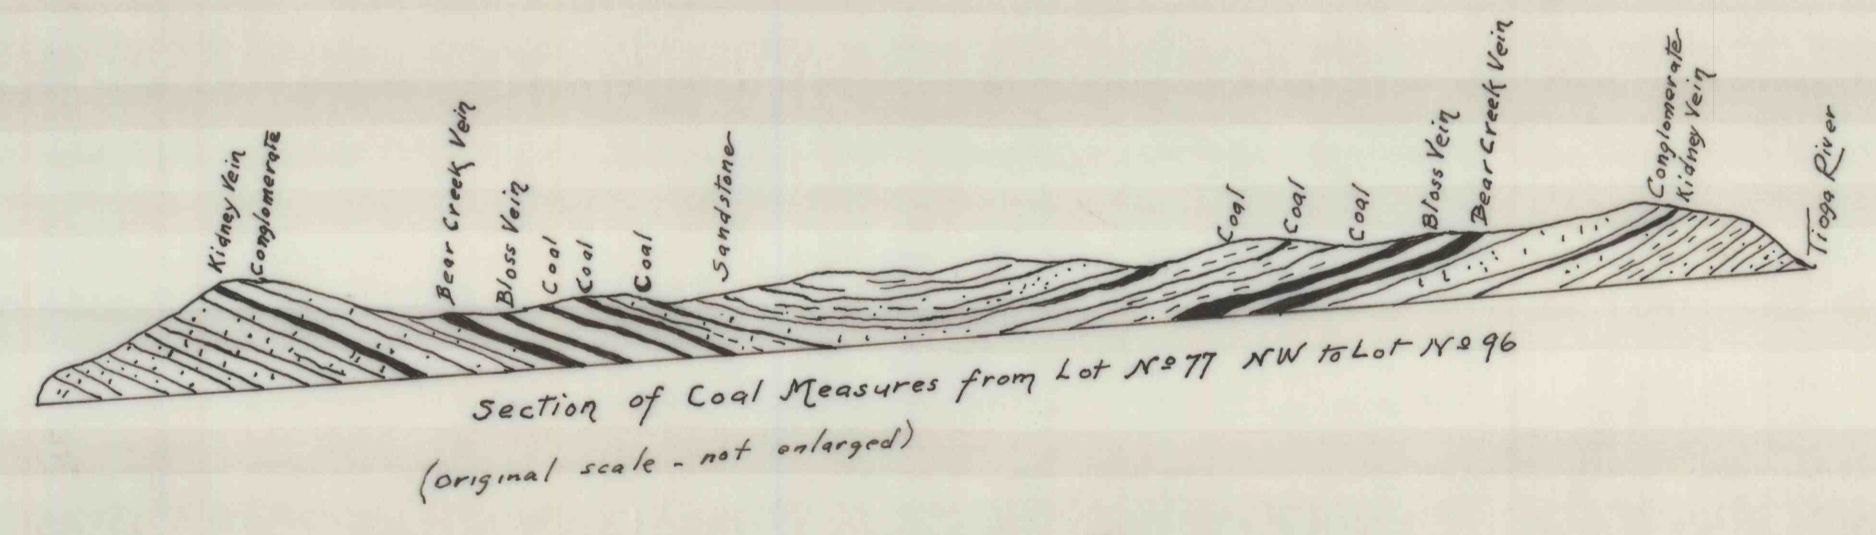 Kidney Vein
Conglomerate
Bear Creek Vein
Bloss Vein
Coal
Coal
Coal
Sandstone
Coal
Coal
Coal
Bloss Vein
Bear Creek Vein
Conglomerate
Kidney Vein
Tioga River
Section of Coal Measures from Lot Nº 77 NW to Lot Nº 96
(original scale - not enlarged)